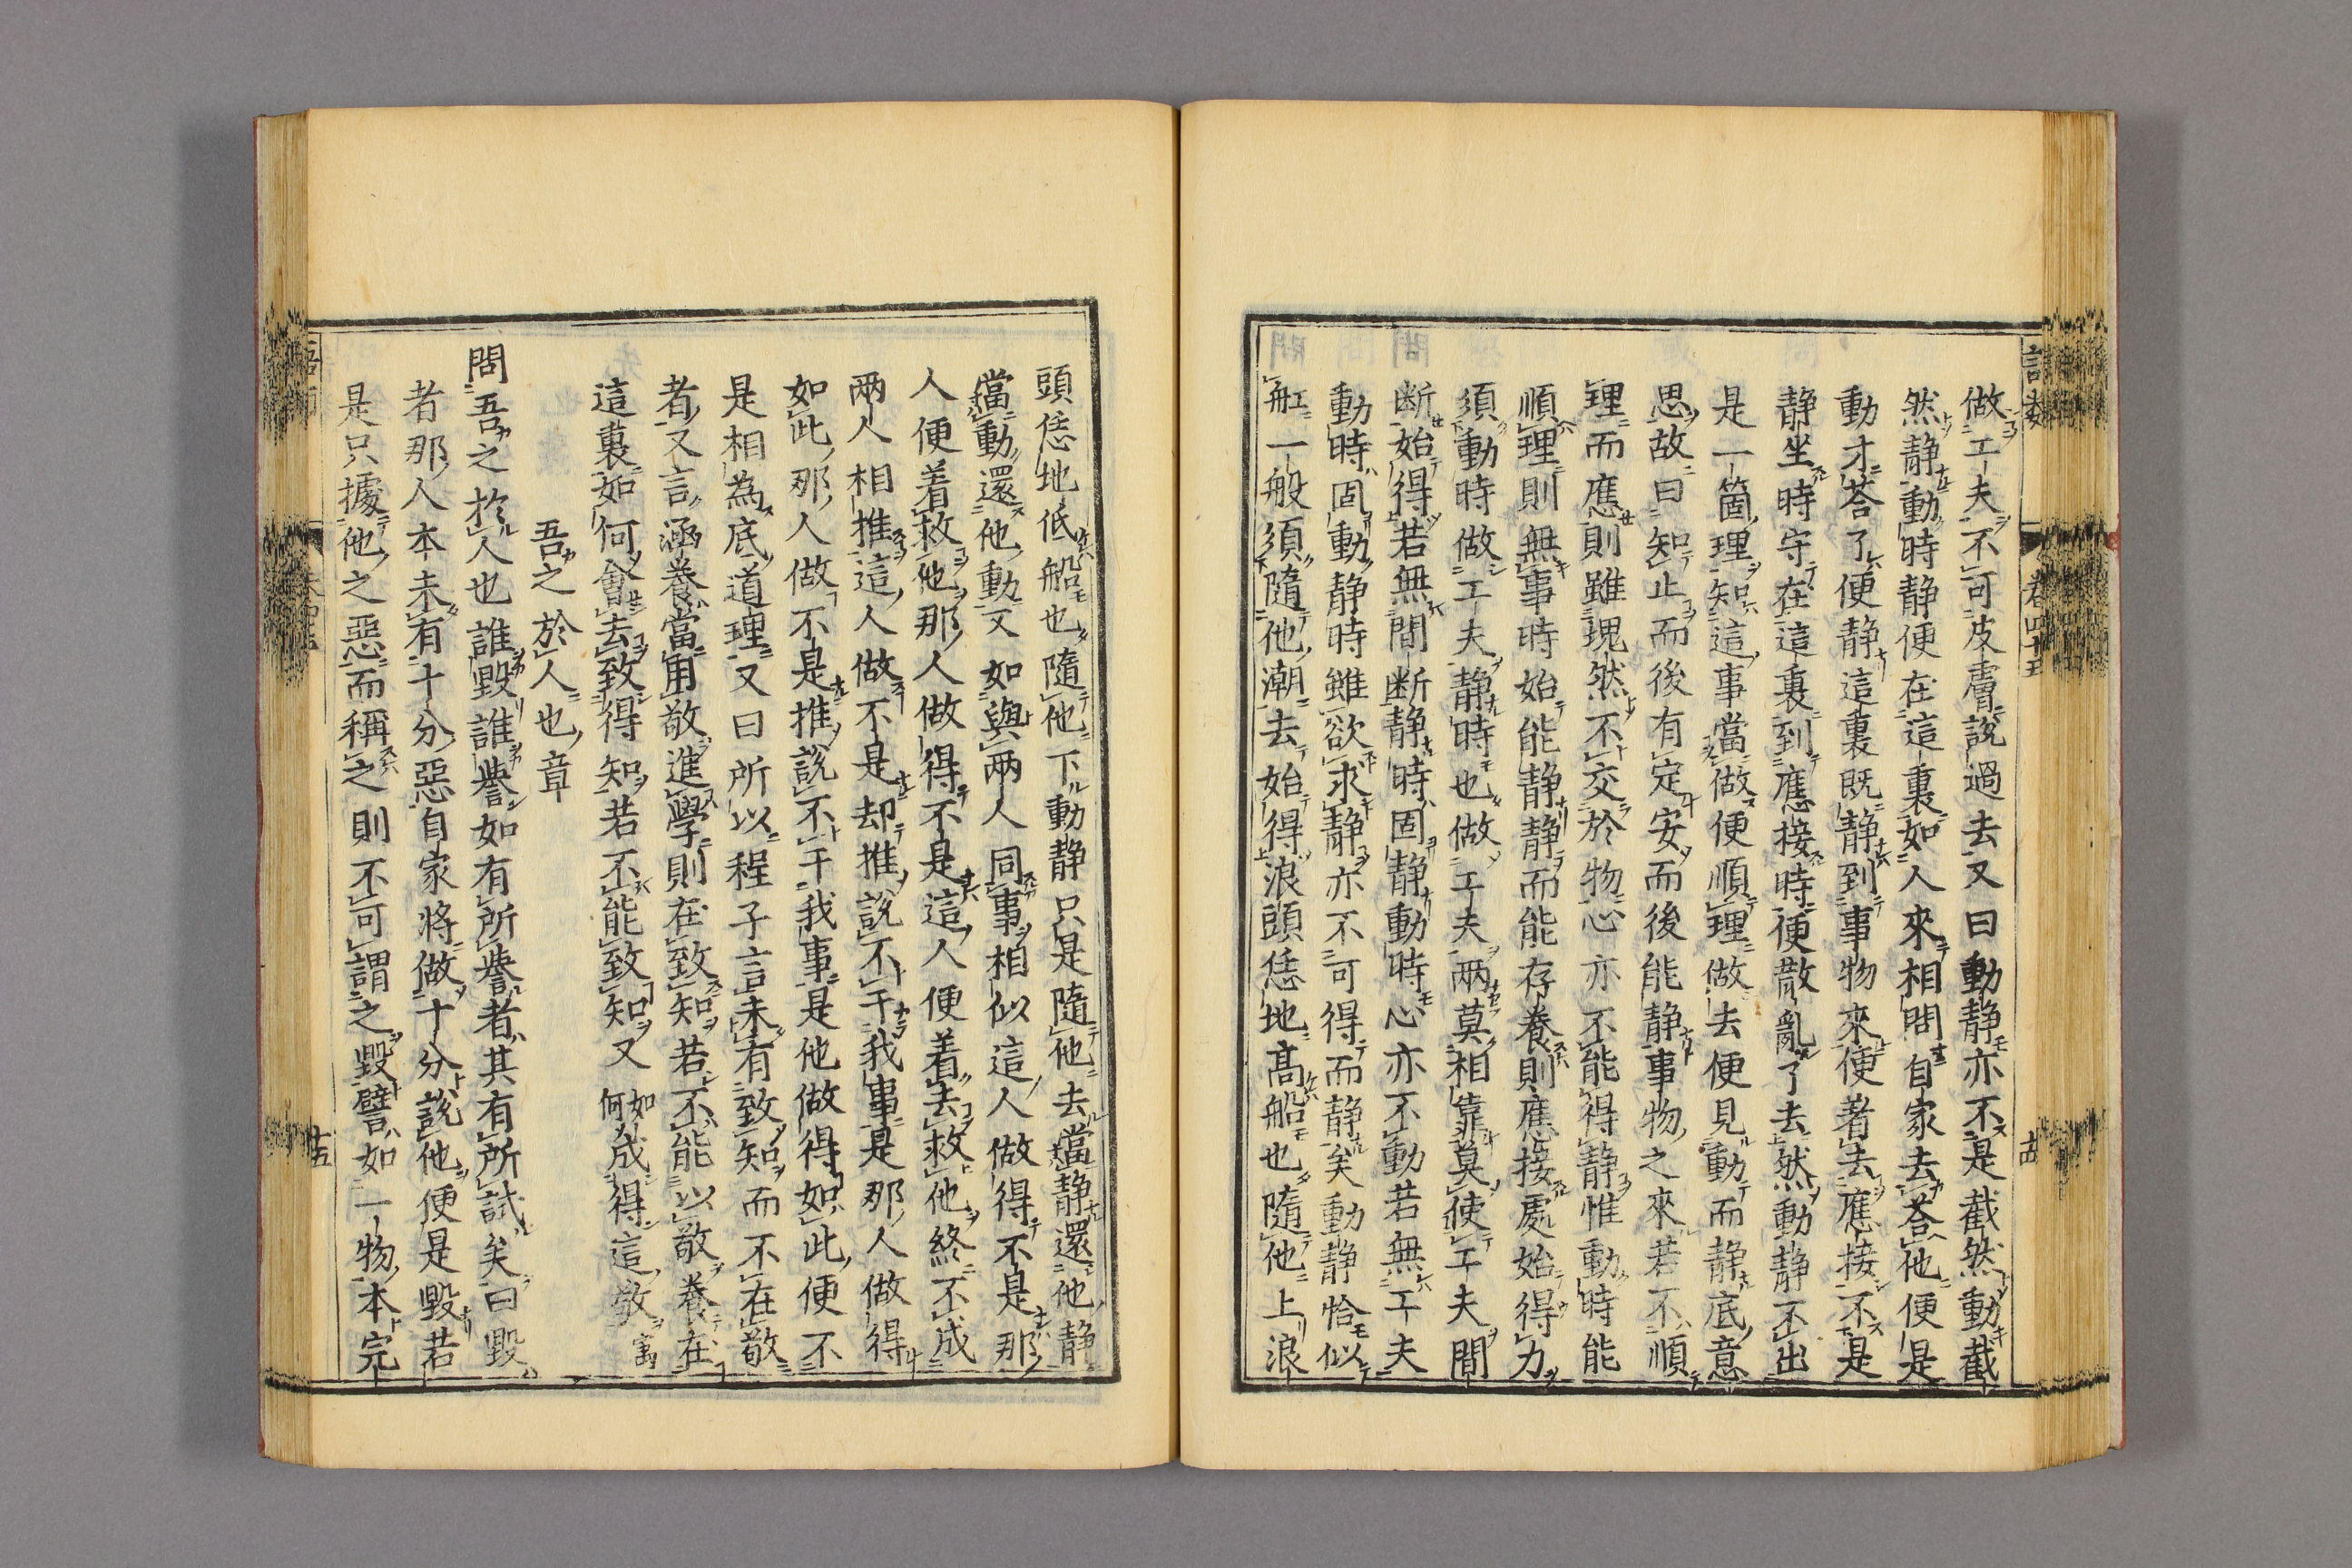 做工夫不可皮膚說過去又曰動静亦不是截然動截
然静動時静便在這裏如人來相問自家去荅他便是
動才荅了便静這裏既静到事物來便著去應接不是
静坐時守在這裏到應接時便散亂了去然動静不出
是一箇理知這事當做便順理做去便見動而静底意
思故曰知止而後有定安而後能静事物之來若不順
理而應則雖塊然不交於物心亦不能得静惟動時能
順理則無事時始能静静而能存養則應接處始得力
須動時做工夫静時也做工夫两莫相靠莫使工夫間
断始得若無間断静時固静動時心亦不動若無工夫
動時固動静時雖欲求静亦不可得而静矣動静恰似
舡一般須隨他潮去始得浪頭恁地高船也隨他上浪
頭恁地低船也隨他下動静只是隨他去當静還他静
當動還他動又如與两人同事相似這人做得不是那
人便着救他那人做得不是這人便着去救他終不成
两人相推這人做不是却推說不干我事是那人做得
如此那人做不是推說不干我事是他做得如此便不
是相為底道理又曰所以程子言未有致知而不在敬
者又言涵養當用敬進學則在致知若不能以敬養在
這裏如何會去致得知若不能致知又如何成得這敬㝢
吾之於人也章
問吾之於人也誰毀誰譽如有所譽者其有所試矣曰毀
者那人本未有十分惡自家將做十分說他便是毀若
是只據他之惡而稱之則不可謂之毀譬如一物本完
卷四十五
十五